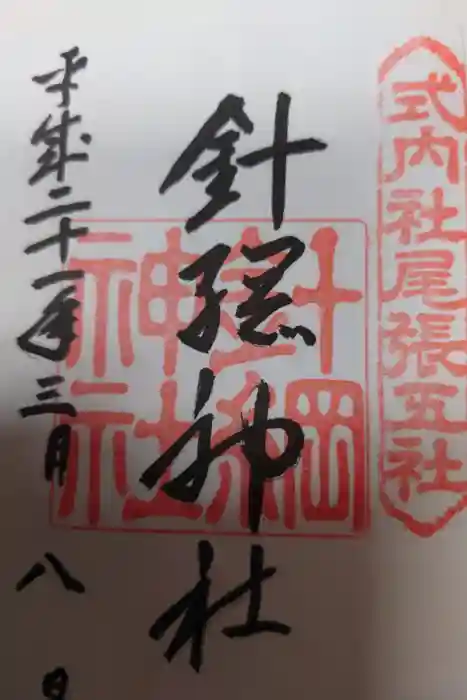 式内社尾張五社
針綱神社
針綱神社
平成二十一年三月八日